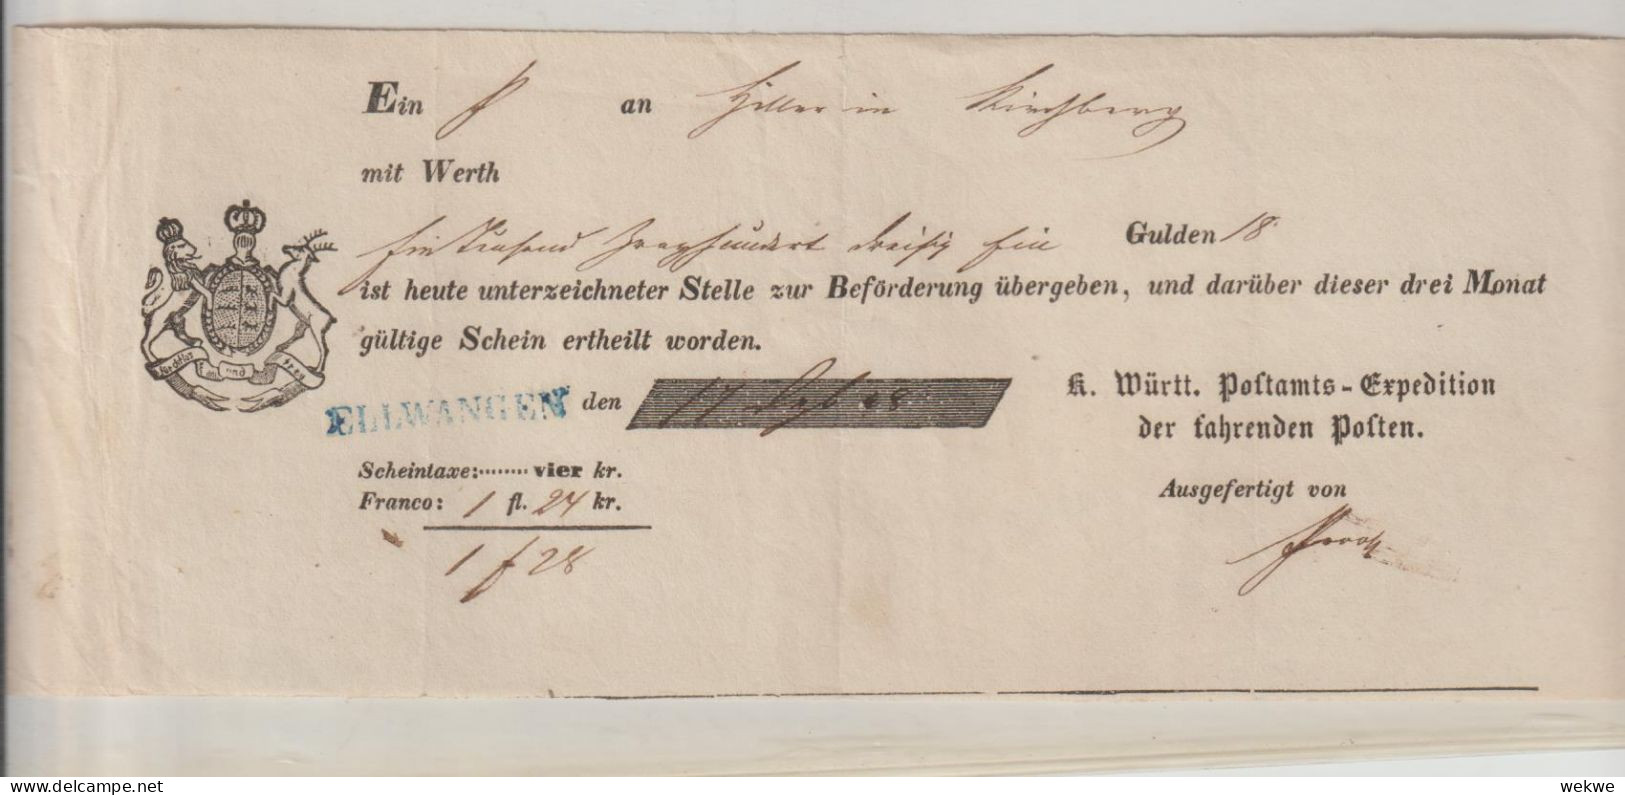 Ein P an Hiller in Kirchberg
mit Werth
Ein Tausend Zweyhundert dreisig Ein Gulden 18
ist heute unterzeichneter Stelle zur Beförderung übergeben, und darüber dieser drei Monat
gültige Schein ertheilt worden.
Furchtlos und trew
ELLWANGEN den 17 48
K. Württ. Postamts-Expedition
der fahrenden Posten.
Scheintaxe:........ vier kr.
Franco: 1 fl. 24 kr.
Ausgefertigt von
1 f 28
wekwe